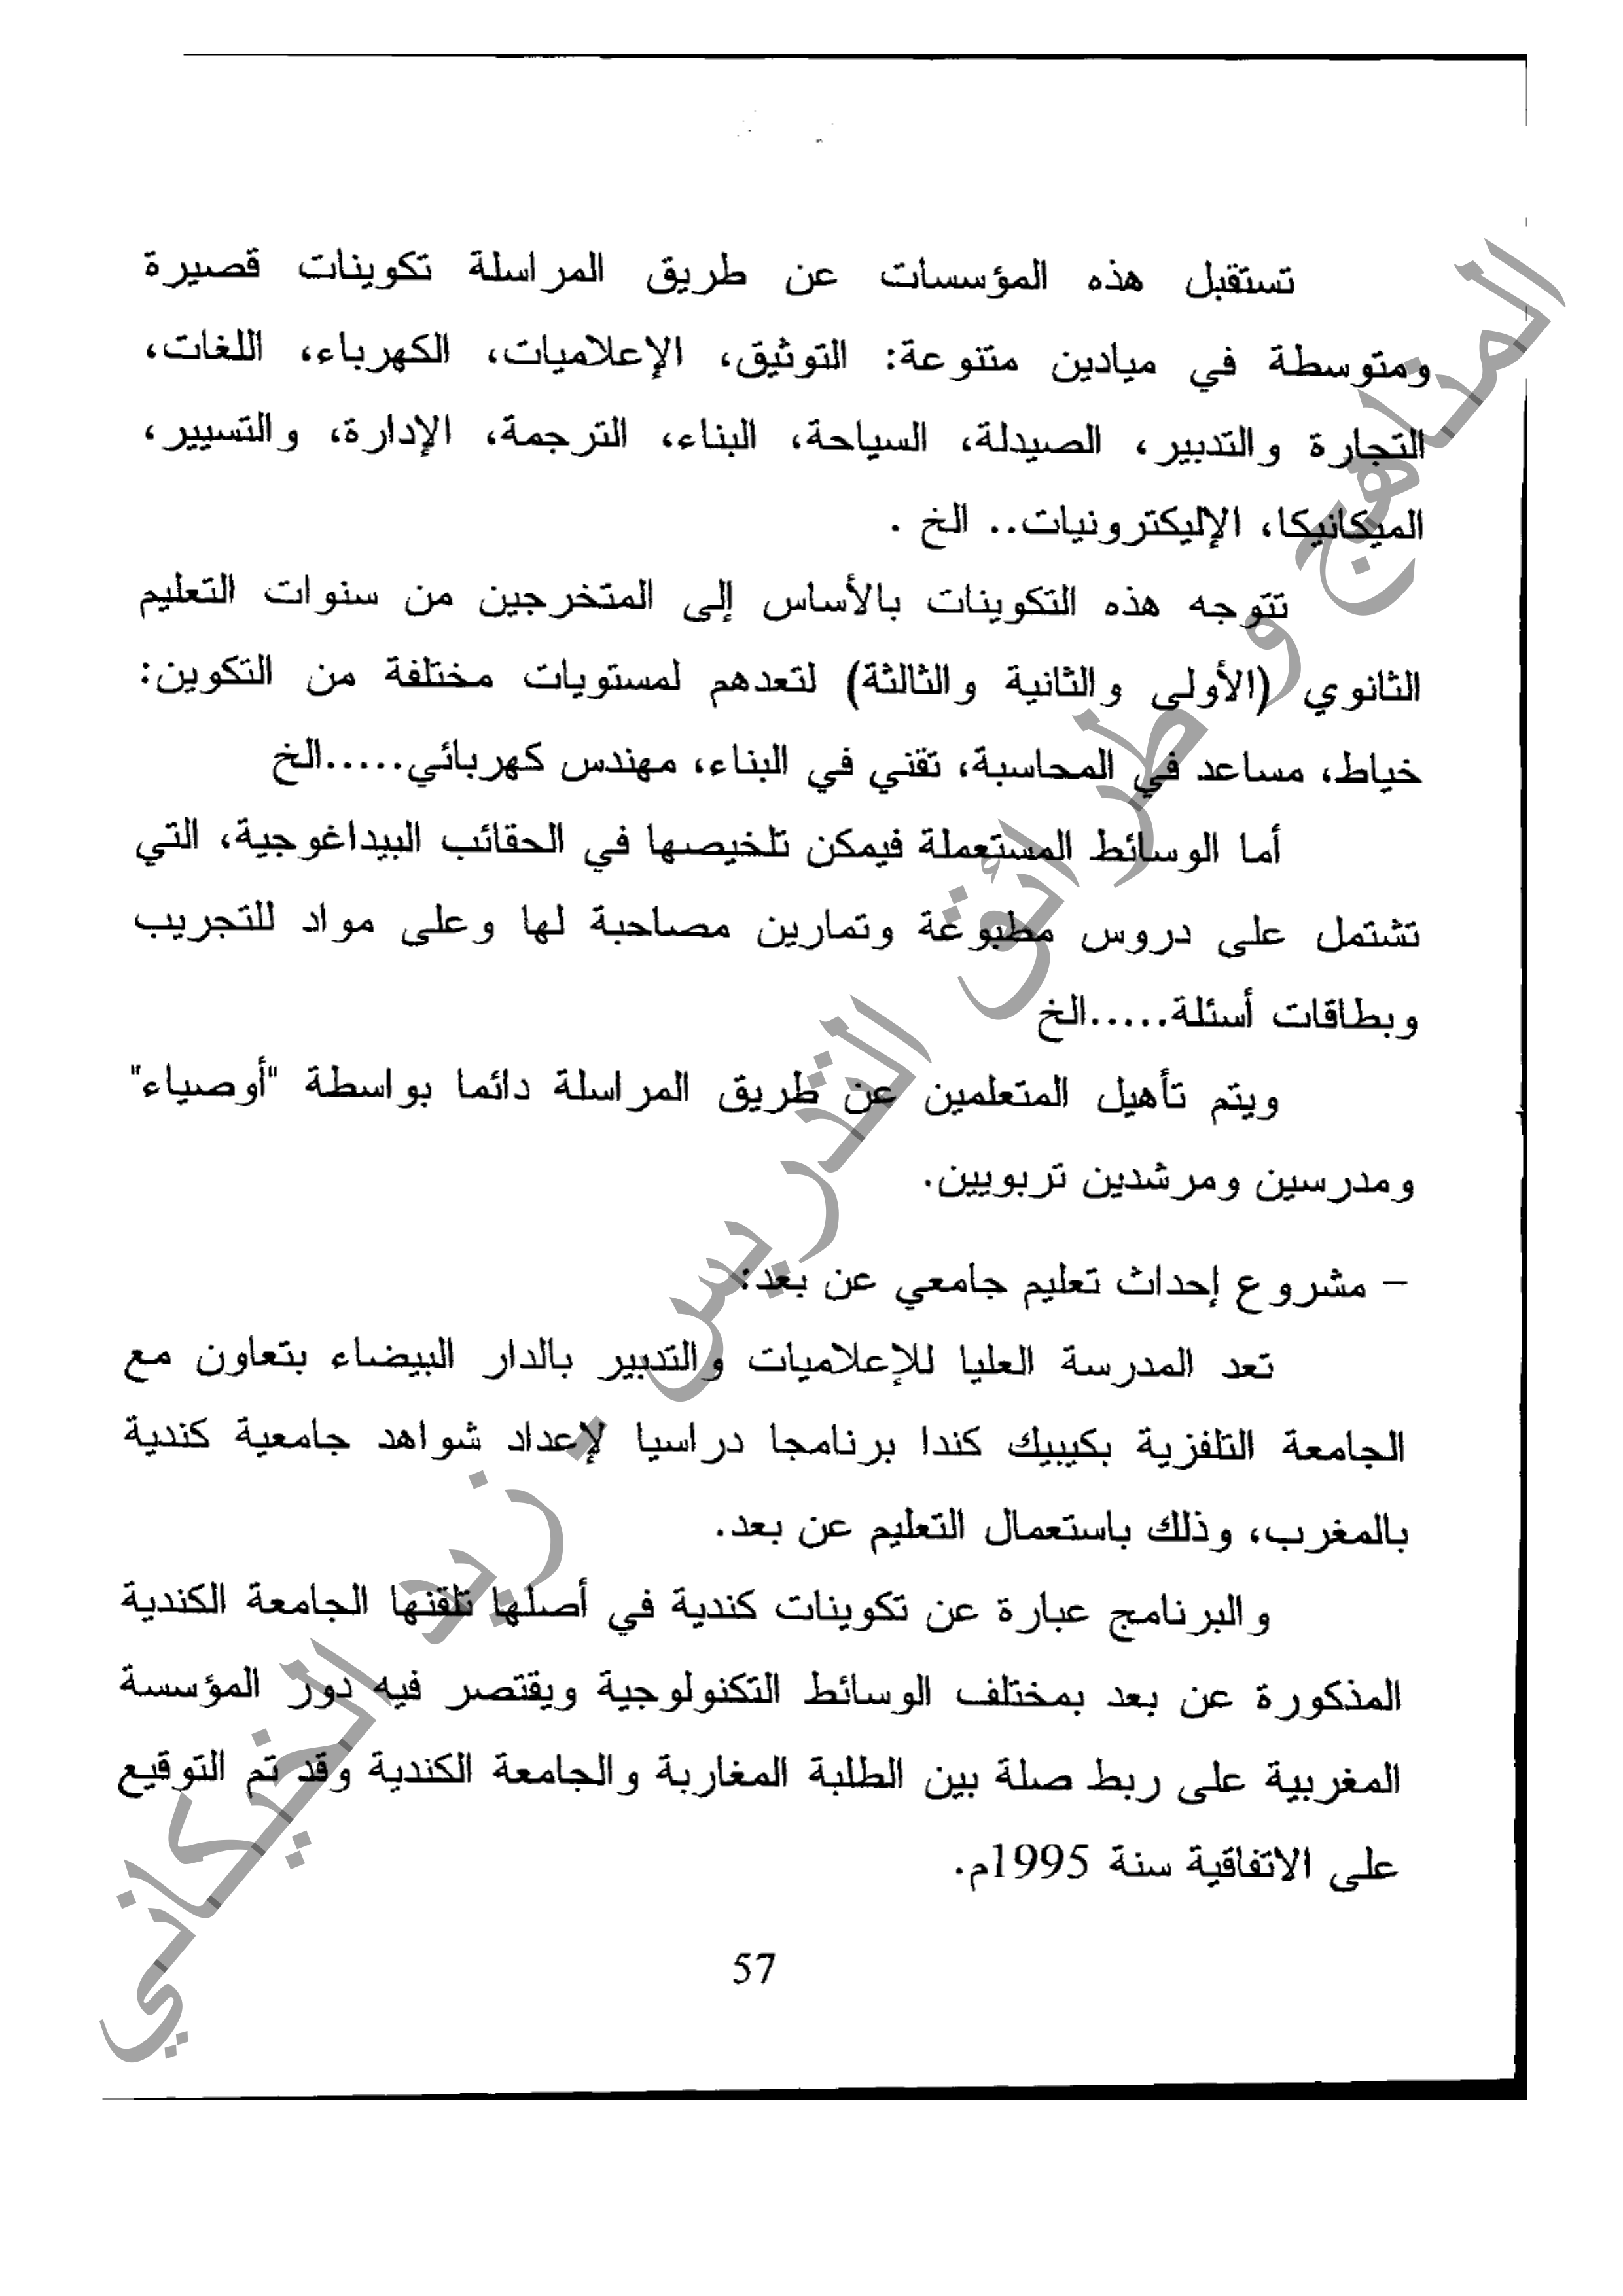 تستقبل هذه المؤسسات عن طريق المراسلة تكوينات قصيرة
ومتوسطة في ميادين متنوعة: التوثيق، الإعلاميات، الكهرباء، اللغات،
التجارة والتدبير، الصيدلة، السياحة، البناء، الترجمة، الإدارة، والتسيير،
الميكانيكا، الإليكترونيات.. الخ .
تتوجه هذه التكوينات بالأساس إلى المتخرجين من سنوات التعليم
الثانوي (الأولى والثانية والثالثة) لتعدهم لمستويات مختلفة من التكوين:
خياط، مساعد في المحاسبة، تقني في البناء، مهندس كهربائي.....الخ
أما الوسائط المستعملة فيمكن تلخيصها في الحقائب البيداغوجية، التي
تشتمل على دروس مطبوعة وتمارين مصاحبة لها وعلى مواد للتجريب
وبطاقات أسئلة.....الخ
ويتم تأهيل المتعلمين عن طريق المراسلة دائما بواسطة "أوصياء"
ومدرسين ومرشدين تربويين.
– مشروع إحداث تعليم جامعي عن بعد:
تعد المدرسة العليا للإعلاميات والتدبير بالدار البيضاء بتعاون مع
الجامعة التلفزية بكيبيك كندا برنامجا دراسيا لإعداد شواهد جامعية كندية
بالمغرب، وذلك باستعمال التعليم عن بعد.
والبرنامج عبارة عن تكوينات كندية في أصلها تلقنها الجامعة الكندية
المذكورة عن بعد بمختلف الوسائط التكنولوجية ويقتصر فيه دور المؤسسة
المغربية على ربط صلة بين الطلبة المغاربة والجامعة الكندية وقد تم التوقيع
على الاتفاقية سنة 1995م.
57
المناهج و طرائق التدريس - زيد الخيكاني